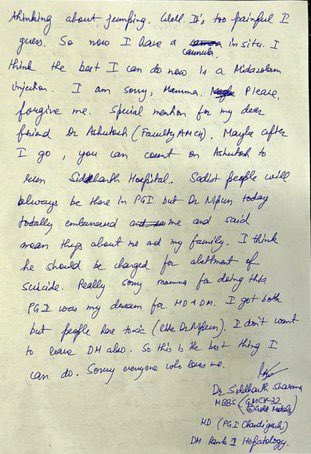 thinking about jumping. Well It's, too painful I
guess. So now I have a cannula in situ. I
think the best I can do now is a Midazolam
injection. I am sorry, Mamma. Please,
forgive me. Special mention for my dear
friend Dr Ashutosh (Faculty AMCH). Maybe after
I go, you can count on Ashutosh to
run Siddharth Hospital. Sadist people will
always be there in PGI but Dr today
totally me and said
mean things about me ad my family. I think
he should be charged for of
suicide. Really sorry mamma for doing this
PGI was my dream for MD & DM. I got both
but people here toxic (like Dr). I don't want
to leave DM also. So this is the best thing I
can do. Sorry everyone who loves me.
Dr Siddharth Sharma
MBBS (GMCH-32
Gold Medals)
MD (PGI Chandigarh)
DM Rank 1 Hepatology.